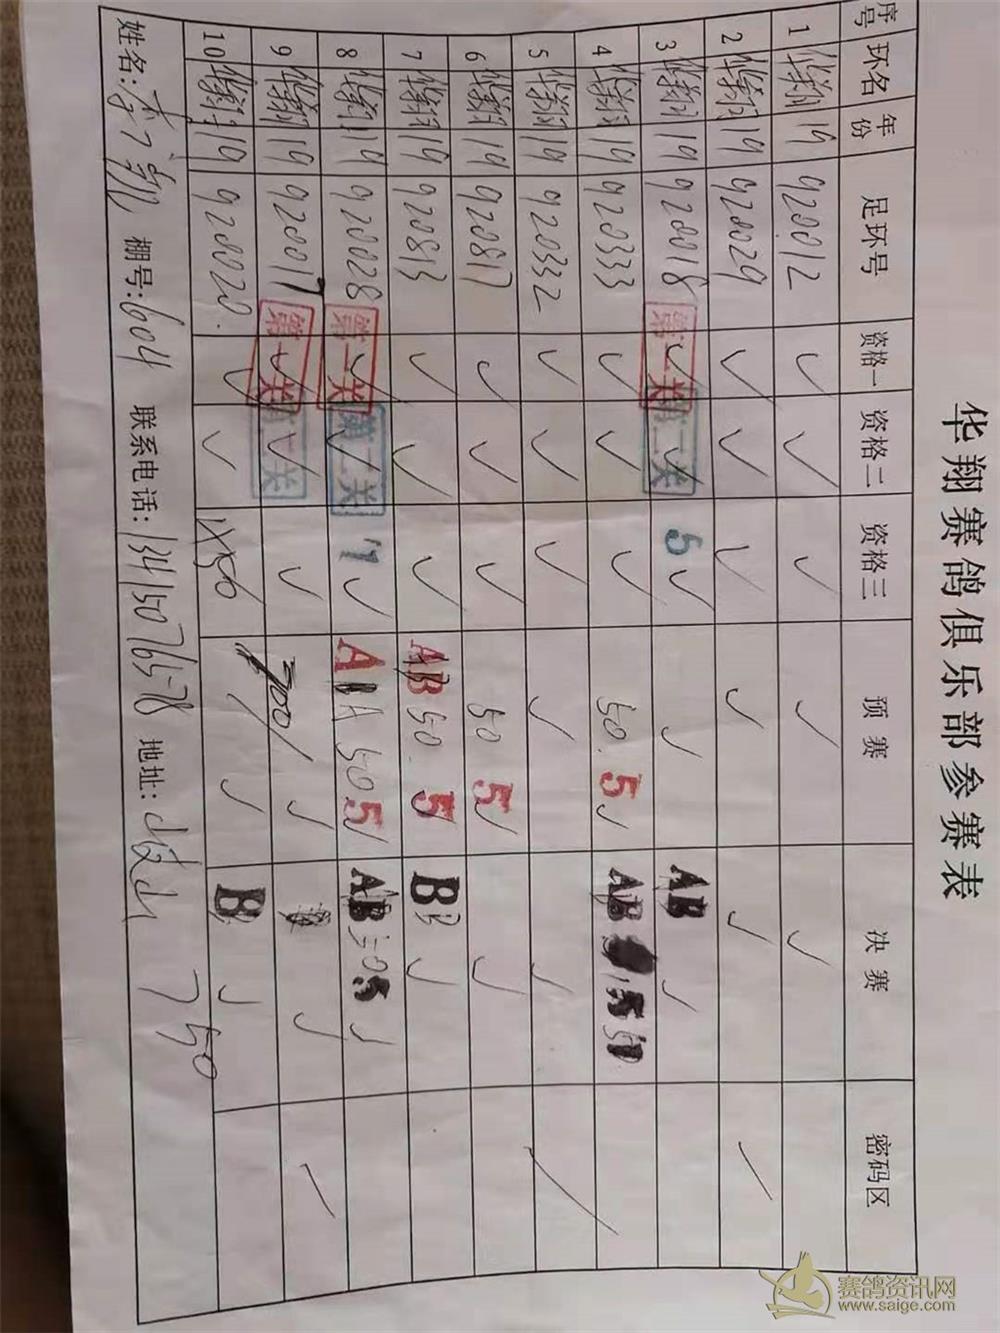 华翔赛鸽俱乐部参赛表
序号 环名 年份 足环号 资格一 资格二 资格三 预赛 决赛 密码区
1 华翔 19 920012 ✓ ✓ ✓ ✓ ✓
2 华翔 19 920029 ✓ ✓ ✓ ✓ ✓
3 华翔 19 920018 第一关 ✓ 第二关 ✓ 5 ✓ ✓ AB ✓
4 华翔 19 920333 ✓ ✓ ✓ 50 5 ✓ AB 50
5 华翔 19 920332 ✓ ✓ ✓ ✓ ✓
6 华翔 19 920817 ✓ ✓ ✓ 50 5 ✓ ✓
7 华翔 19 920813 ✓ ✓ ✓ AB 50 5 B ✓
8 华翔 19 920028 第一关 ✓ 第二关 ✓ 1 ✓ A 50 5 ✓ AB 50 5 ✓
9 华翔 19 920017 第一关 ✓ 第二关 ✓ ✓ 300 ✓ ✓
10 华翔 19 920020 ✓ ✓ 1X50 ✓ B ✓
姓名: 棚号: 604 联系电话: 13415076578 地址: 岐山 750
赛鸽资讯网
www.saige.com